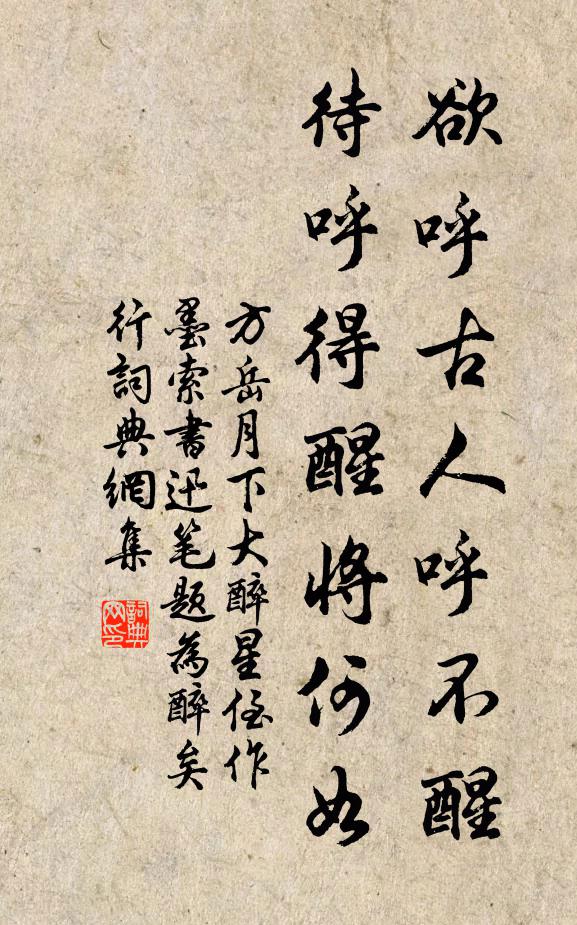 欲呼古人呼不醒
待呼得醒將何如
方岳月下大醉星侄作
墨索書迅笔题為醉矣
行詞典網集
詞典网印